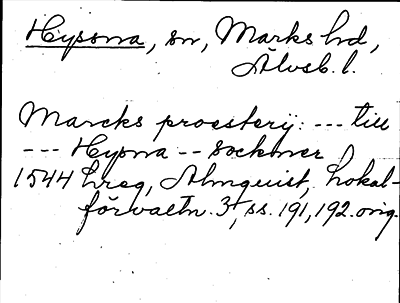 Hyssna, sn, Marks hd,
Älvsb. l.
Marcks proesterij: --- till
--- Hysna -- sockner
1544 hreg, Almquist, Lokal-
förvaltn. 3, ss. 191, 192. orig.